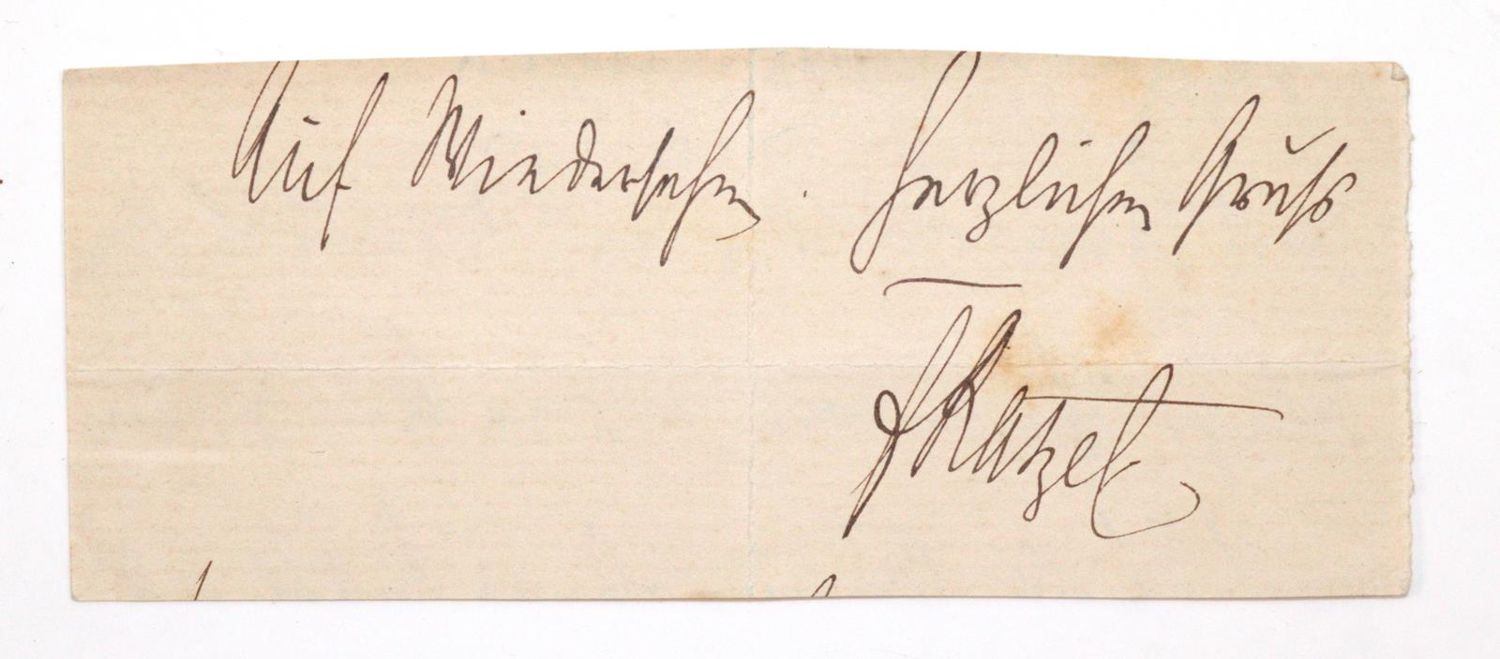 Auf Wiedersehen. Herzlichen Gruß
FRatzel